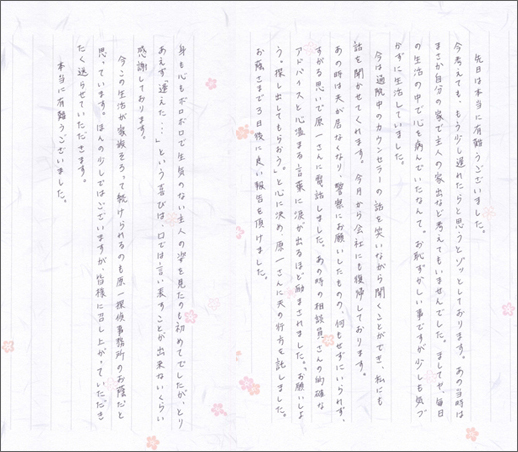 先日は本当に有難うございました。
今考えても、もう少し遅れたらと思うとゾッとしております。あの当時は
まさか自分の家で主人の家出など考えてもいませんでした。ましてや、毎日
の生活の中で心を病んでいたなんて。お恥ずかしい事ですが少しも気づ
かずに生活していました。
今は通院中のカウンセラーの話を笑いながら聞くことができ、私にも
話を聞かせてくれます。今月から会社にも復帰しております。
あの時は夫が居なくなり、警察にお願いしたものの、何もせずにいられず、
すがる思いで原一さんに電話しました。あの時の相談員さんの的確な
アドバイスと心温まる言葉に涙が出るほど励まされました。「お願いしよ
う。探し出してもらおう。」と心に決め、原一さんに夫の行方を託しました。
お蔭さまで3日後に良い報告を頂けました。
身も心もボロボロで生気のない主人の姿を見たのも初めてでしたが、とり
あえず「逢えた…」という喜びは、口では言い表すことが出来ないくらい
感謝しております。
今この生活が家族そろって続けられるのも原一探偵事務所のお蔭だと
思っています。ほんの少しではございますが、皆様に召し上がっていただき
たく送らせていただきます。
本当に有難うございました。